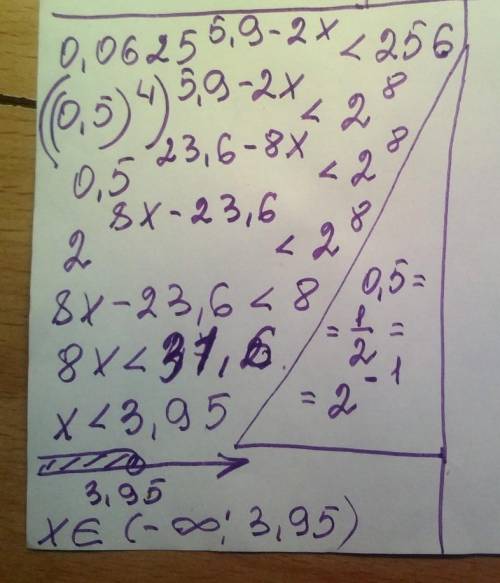 0,0625^5,9-2x < 256
((0,5)^4)^5,9-2x < 2^8
0,5^23,6-8x < 2^8
2^8x-23,6 < 2^8
8x-23,6 < 8
8x < 31,6
x < 3,95
3,95
x ∈ (-∞; 3,95)
0,5 =
= 1/2 =
= 2^-1